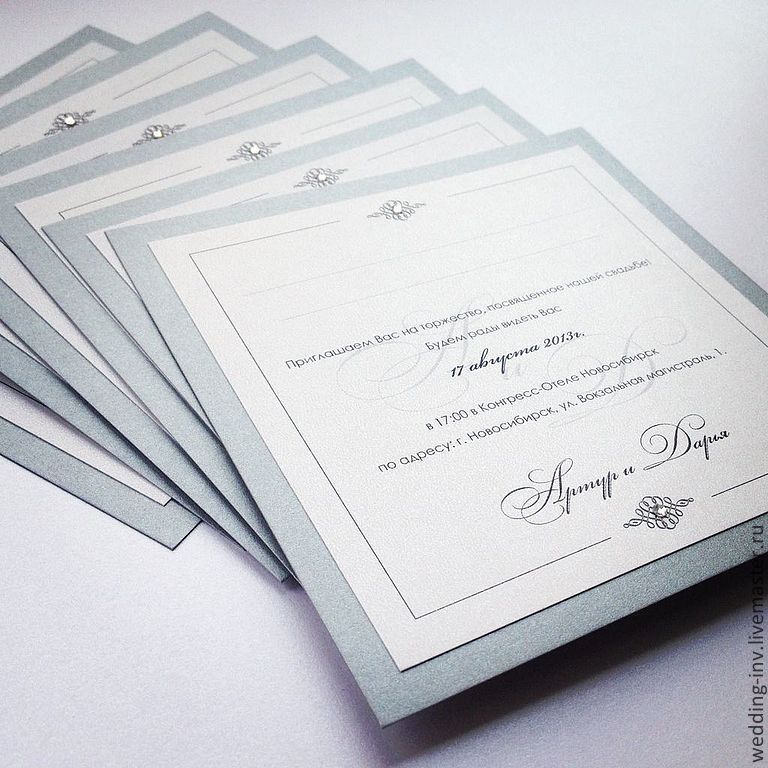 Приглашаем Вас на торжество, посвященное нашей свадьбе!
Будем рады видеть Вас
17 августа 2013г.
в 17:00 в Конгресс-Отеле Новосибирск
по адресу: г. Новосибирск, ул. Вокзальная магистраль, 1.
Артур и Дарья
А и Д
wedding-inv.livemaster.ru